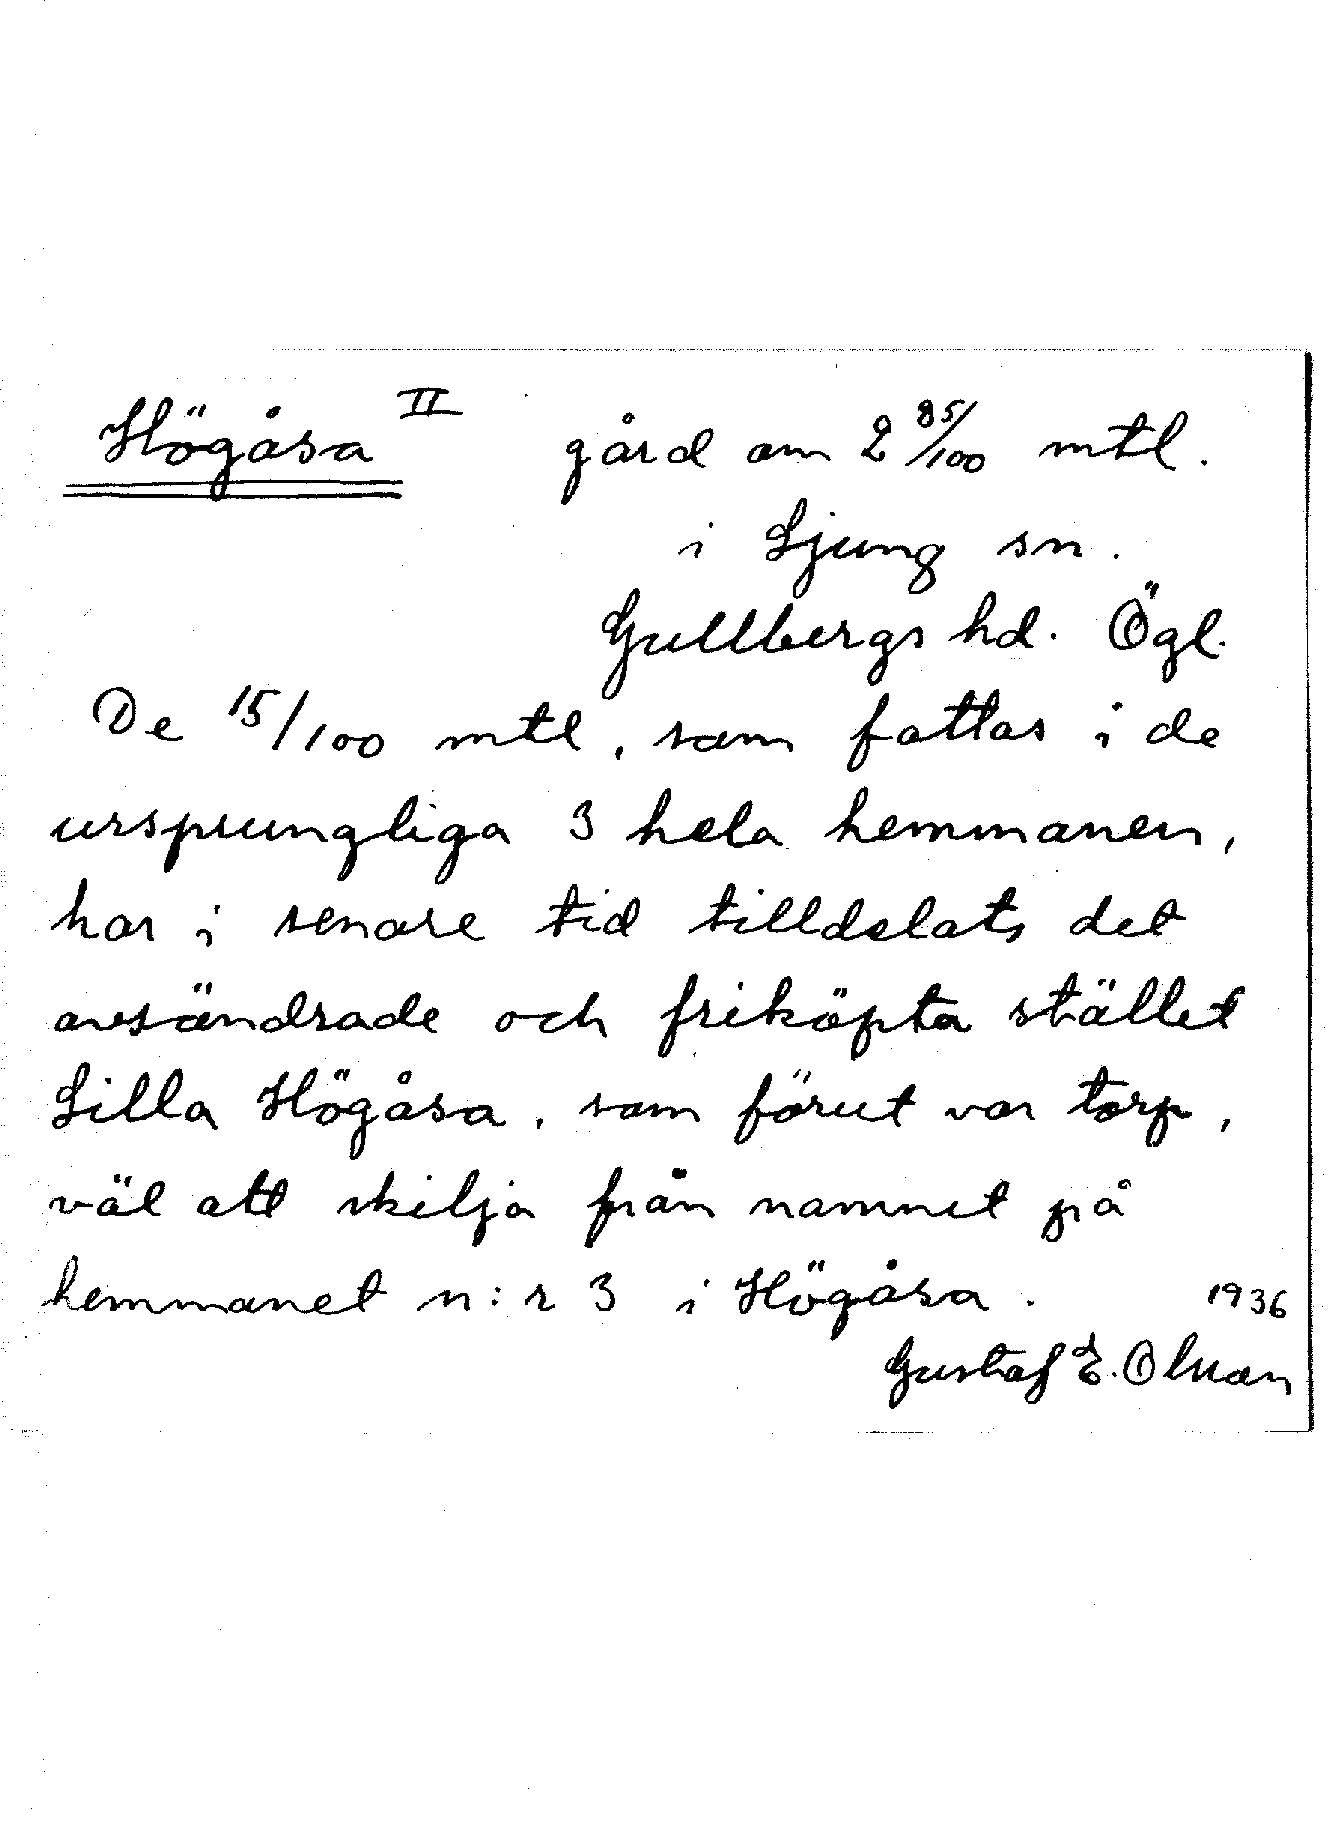 Högåsa II gård om 2 85/100 mtl.
i Ljung sn.
Gullbergs hd. Ögl.
De 15/100 mtl, som fattas i de
ursprungliga 3 hela hemmanen,
har i senare tid tilldelats det
avsöndrade och friköpta stället
Lilla Högåsa, som förut var torp,
väl att skilja från namnet på
hemmanet n:r 3 i Högåsa. 1936
Gustaf E. Olson